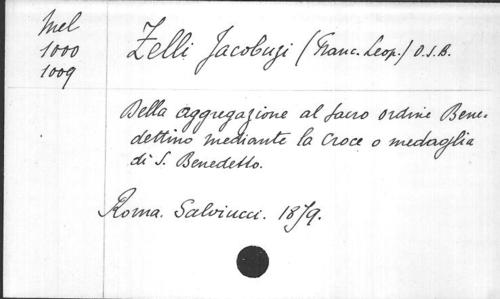 Mel
1000
1009
Zelli Jacobuzi (Franc. Leop.) O.S.B.
Della aggregazione al sacro ordine Bene-
dettino mediante la Croce o medaglia
di S. Benedetto.
Roma. Salviucci. 1879.